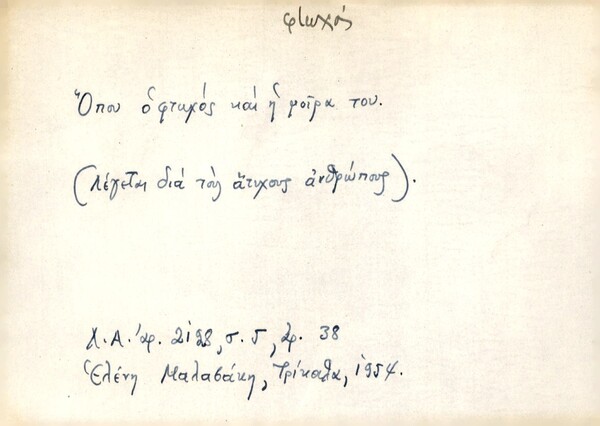 φτωχός
Ὅπου ὁ φτωχός καί ἡ μοῖρα του.
(Λέγεται διά τούς ἄτυχους ἀνθρώπους).
Λ.Α. ἀρ. 2198, σ. 5, ἀρ. 38
Ἑλένη Μαλαβάκη, Τρίκαλα, 1954.